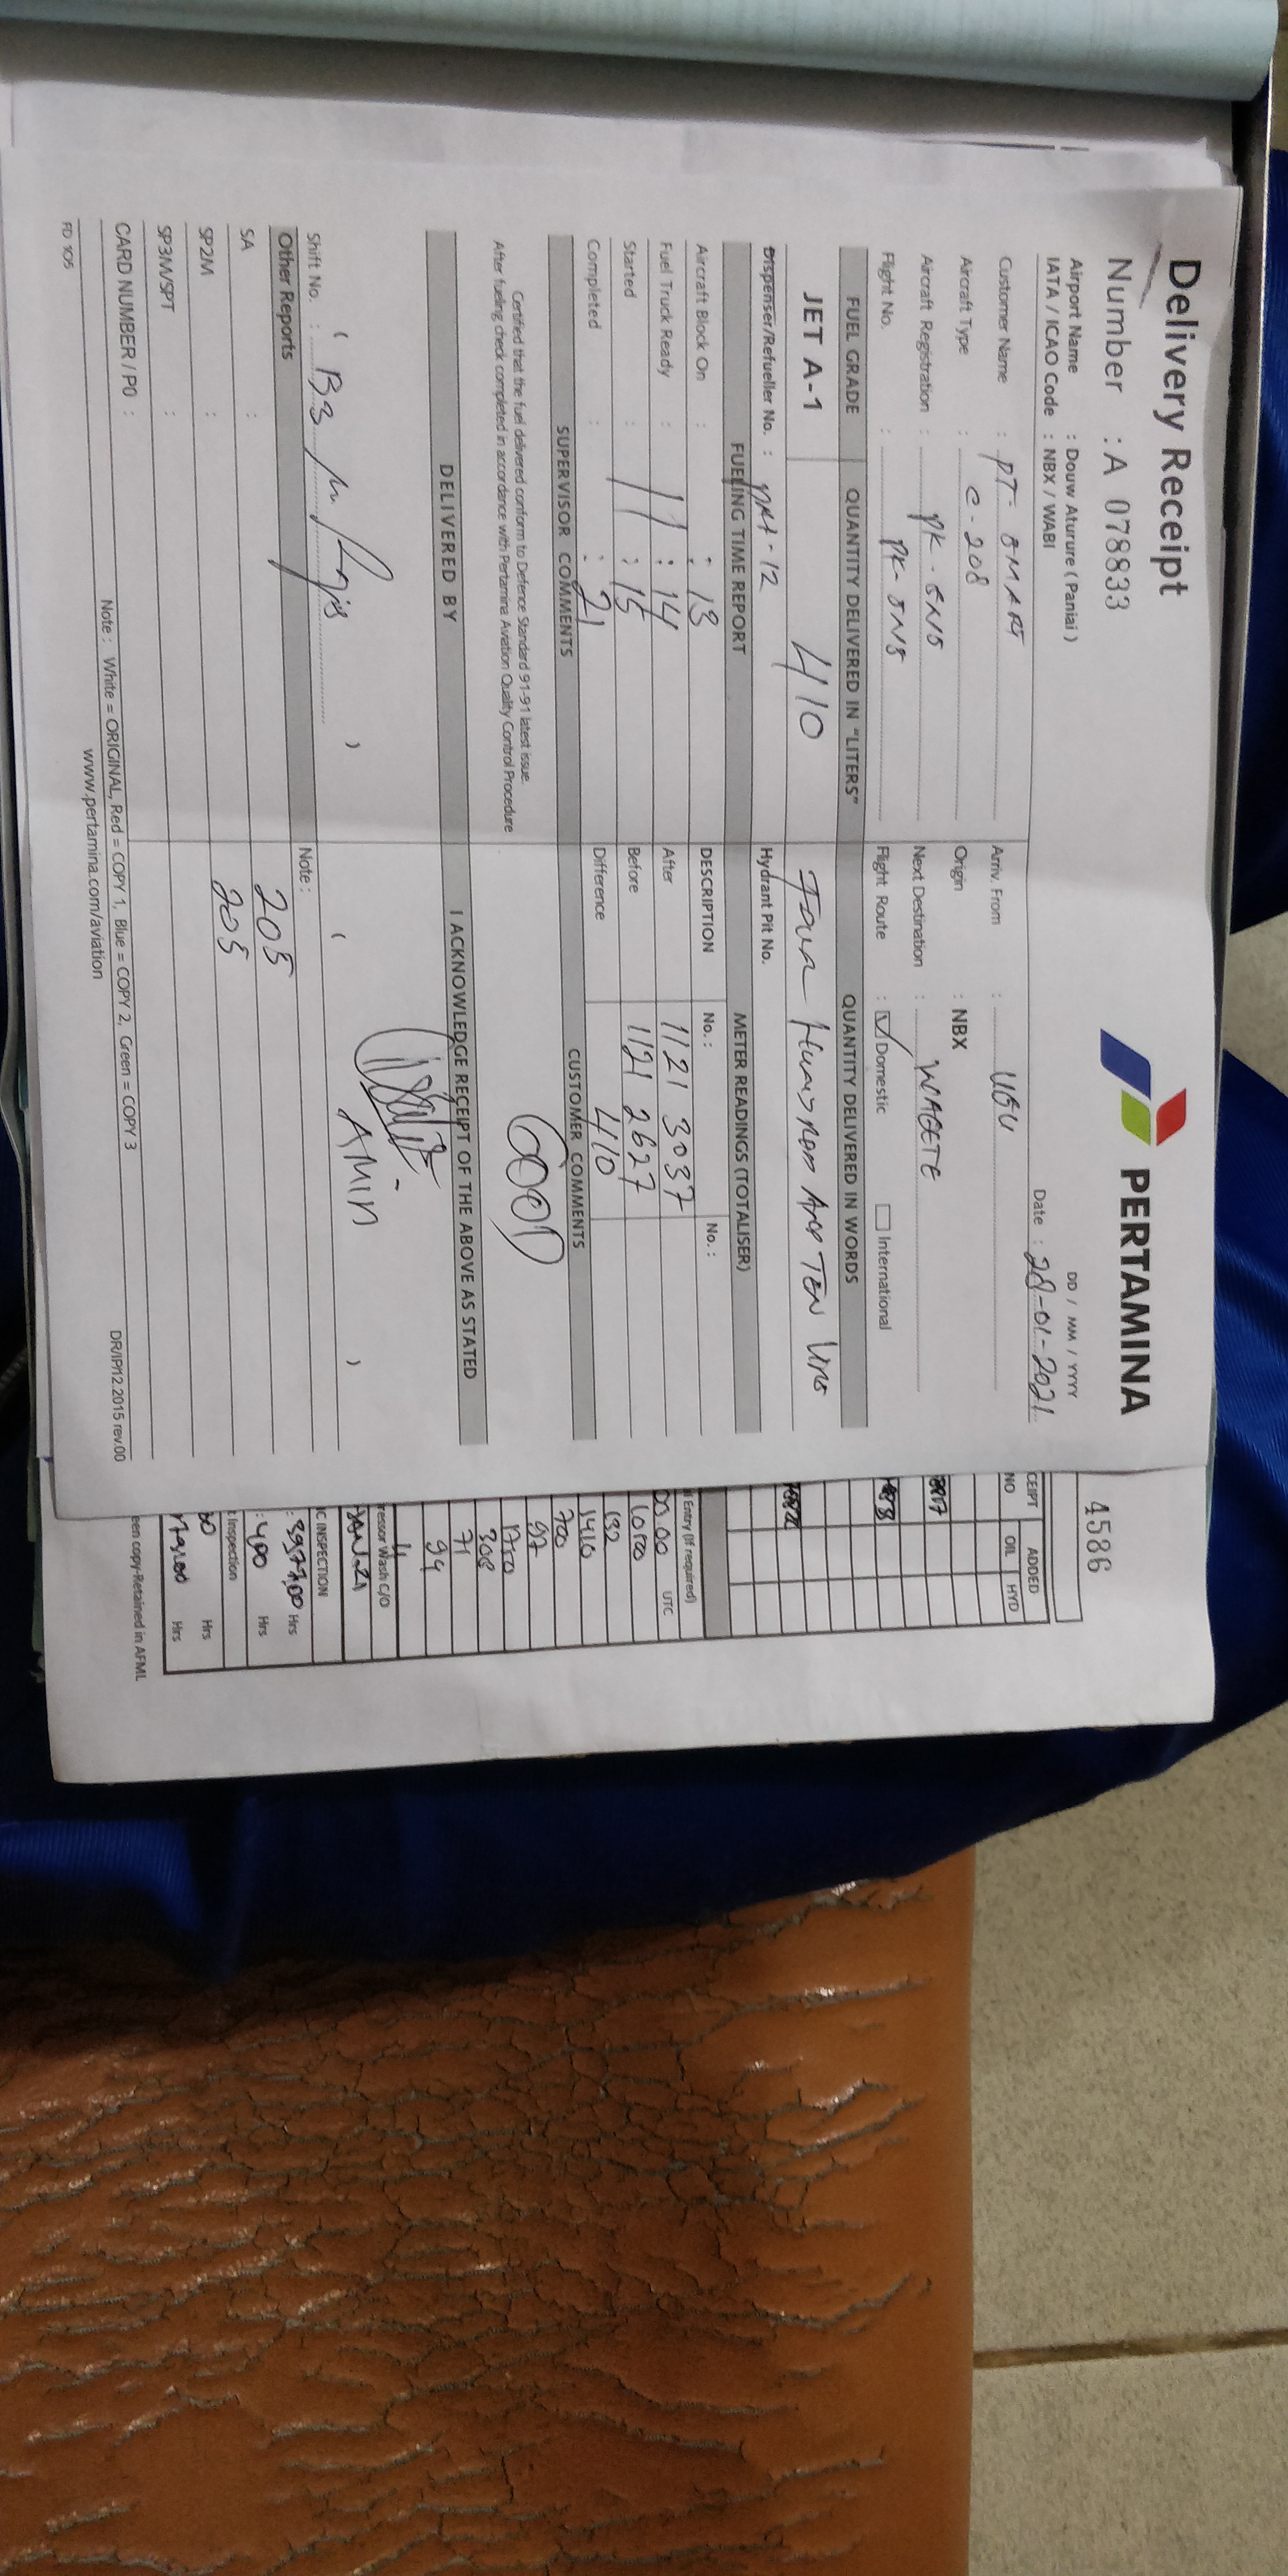 Delivery Receipt
PERTAMINA
Number : A 078833
DD / MM / YYYY
Airport Name : Douw Aturure ( Paniai )
IATA / ICAO Code : NBX / WABI
Date : 28-01-2021
Customer Name : PT- SMART
Arriv. From : UGU
Aircraft Type : C-208
Origin : NBX
Aircraft Registration : PK - SNS
Next Destination : WAGETE
Flight No. : PK- SNS
Flight Route : Domestic International
FUEL GRADE QUANTITY DELIVERED IN "LITERS" QUANTITY DELIVERED IN WORDS
JET A-1 410 Four TEN
Dispenser/Refueller No. : Hydrant Pit No.
FUELING TIME REPORT METER READINGS (TOTALISER)
Aircraft Block On : : 13 DESCRIPTION No. : No. :
Fuel Truck Ready : : 14 After 1121 3037
Started : : 15 Before 1121 2627
Completed : : 21 Difference 410
SUPERVISOR COMMENTS CUSTOMER COMMENTS
Certified that the fuel delivered conform to Defence Standard 91-91 latest issue.
After fueling check completed in accordance with Pertamina Aviation Quality Control Procedure
GOOD
DELIVERED BY I ACKNOWLEDGE RECEIPT OF THE ABOVE AS STATED
AMIN
( ) ( )
Shift No. : B3
Other Reports Note :
SA : 205
SP2M : 205
SP3M/SPT :
CARD NUMBER / PO :
Note : White = ORIGINAL, Red = COPY 1, Blue = COPY 2, Green = COPY 3
www.pertamina.com/aviation
FD 105
DR/IP/12.2015 rev.00
4586
CEIPT ADDED
NO OIL HYD
l Entry (If required)
UTC
132
1410
700
97
308
71
94
ressor Wash C/O
C INSPECTION
: 3977,00 Hrs
: 400 Hrs
Inspection
Hrs
Hrs
een copy-Retained in AFML